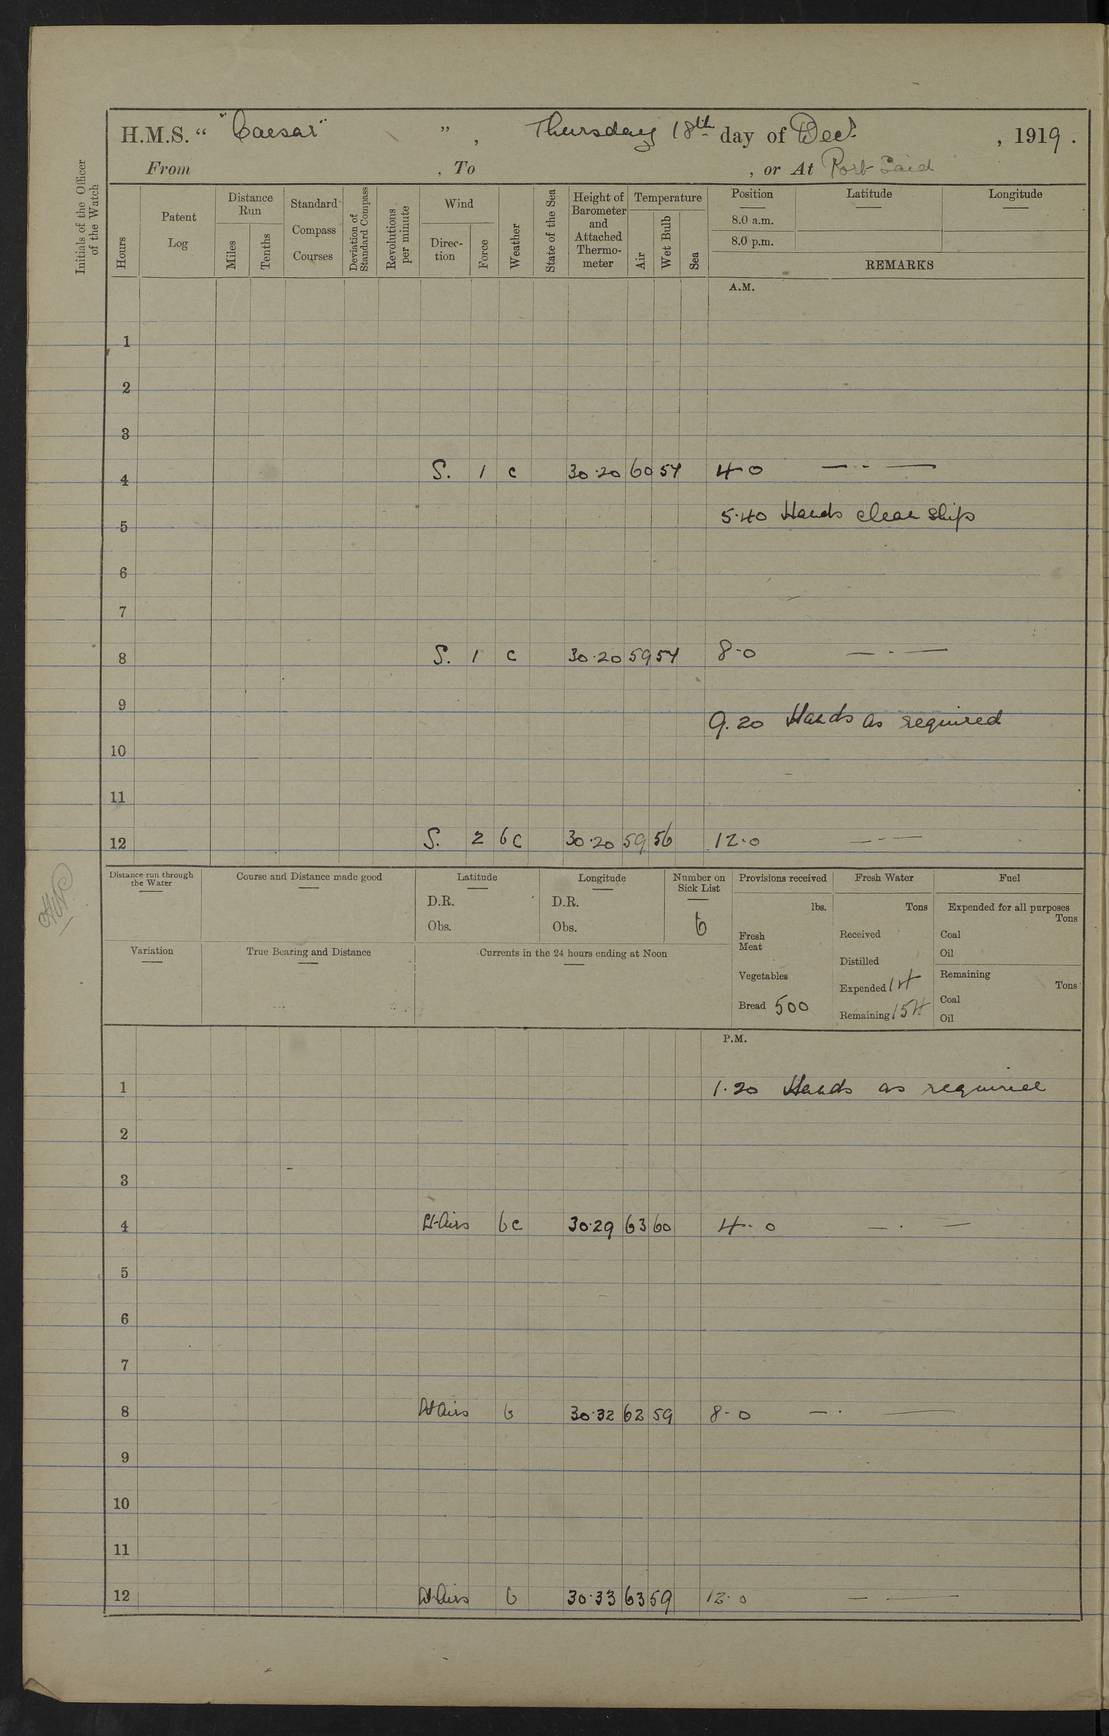 H.M.S. “ "Caesar" ”, Thursday 18th day of Decr , 1919.
From , To , or At Port Said
Initials of the Officer of the Watch
Hours
Patent Log
Distance Run
Miles
Tenths
Standard Compass Courses
Deviation of Standard Compass
Revolutions per minute
Wind
Direc-tion
Force
Weather
State of the Sea
Height of Barometer and Attached Thermo-meter
Temperature
Air
Wet Bulb
Sea
Position Latitude Longitude
8.0 a.m.
8.0 p.m.
REMARKS
A.M.
1
2
3
4 S. 1 c 30.20 60 57 4-0 — -- —
5.40 Hands clean ship
5
6
7
8 S. 1 c 30.20 59 57 8-0 — - —
9
9.20 Hands as required
10
11
12 S. 2 bc 30.20 59 56 12.0 — - —
Distance run through the Water
Course and Distance made good
Latitude
D.R.
Obs.
Longitude
D.R.
Obs.
Number on Sick List
6
Provisions received
lbs.
Fresh Meat
Vegetables
Bread 500
Fresh Water
Tons
Received
Distilled
Expended 14
Remaining 154
Fuel
Expended for all purposes
Tons
Coal
Oil
Remaining
Tons
Coal
Oil
Variation
True Bearing and Distance
Currents in the 24 hours ending at Noon
P.M.
1 1.20 Hands as required
2
3
4 Lt Airs bc 30.29 63 60 4.0 — . —
5
6
7
8 Lt Airs b 30.32 62 59 8-0 — . —
9
10
11
12 Lt Airs b 30.33 63 59 12.0 — —